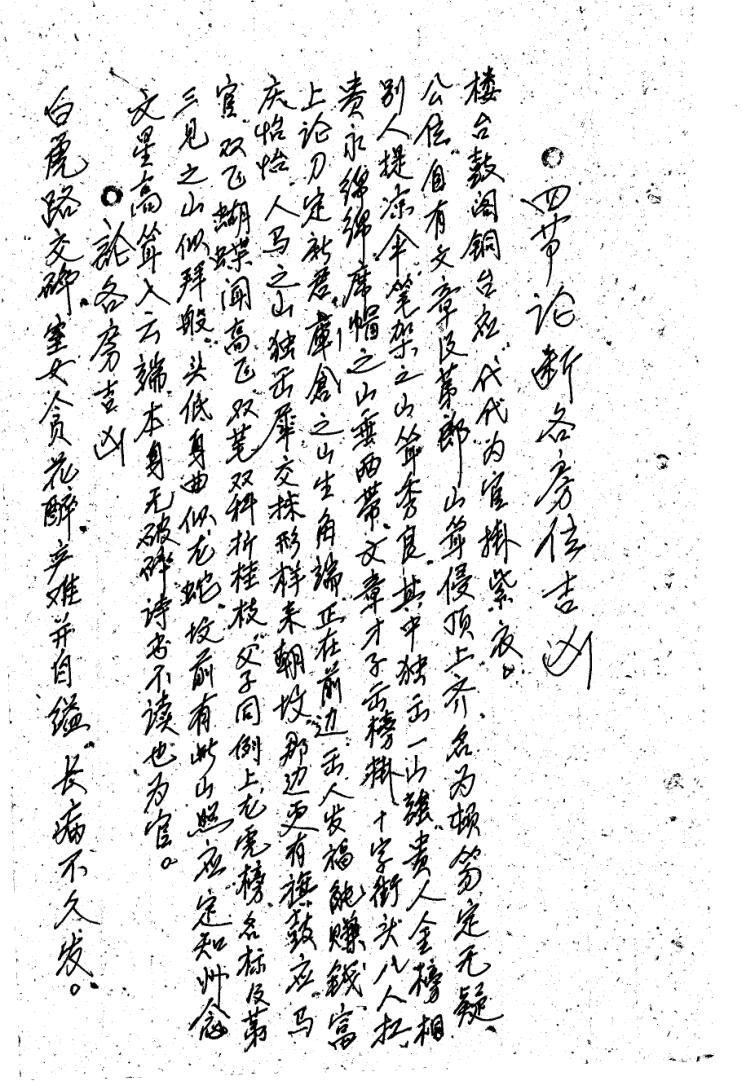 四节论断各房位吉凶
楼台鼓阁铜台应，代代为官掛紫衣。
公位自有文章及第郎，山耸侵顶上齐，名为顿笏定无疑，
别人提凉伞，笔架之山耸秀良，其中独出一山强，贵人金榜相
贵永绵绵，席帽之山垂两带，文章才子出榜掛，十字街头八人扛，
上论刀定新君，库仓之山生角端，正在前边出人发福能赚钱，富
庆怡怡，人马之山独出群，交抹形样来朝坟，那边更有旗鼓应，马
官，双飞蝴蝶闻高飞，双荐双科折桂枝，父子同例上龙虎榜，名标及第
三見之山似拜般，头低身曲似龙蛇，坟前有此山照应，定知州
文星高耸入云端，本身无破碎，诗书不读也为官。
論各房吉凶
白虎路交碎，室女贪花醉，产难并自缢，长病不久发。